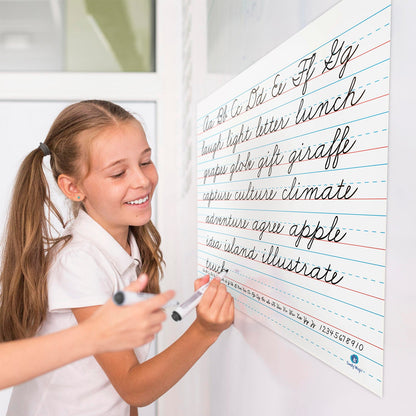 Aa Bb Cc Dd Ee Ff Gg
laugh light letter lunch
grapes glob gift giraffe
capture culture climate
adventure agree apple
idea island illustrate
truck
12345678910